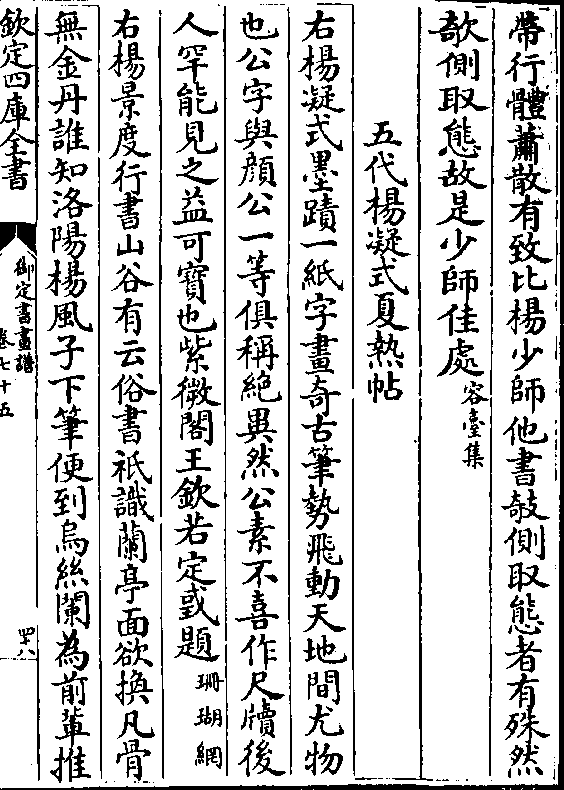 帶行體蕭散有致比楊少師他書欹側取態者有殊然
欹側取態故是少師佳處容臺集
五代楊凝式夏熱帖
右楊凝式墨蹟一紙字畫奇古筆勢飛動天地間尤物
也公字與顔公一等俱稱絶異然公素不喜作尺牘後
人罕能見之益可寶也紫微閣王欽若定或題珊瑚網
右楊景度行書山谷有云俗書祇識蘭亭面欲換凡骨
無金丹誰知洛陽楊風子下筆便到烏絲闌為前軰推
欽定四庫全書
御定書畫譜
卷七十五
四十八